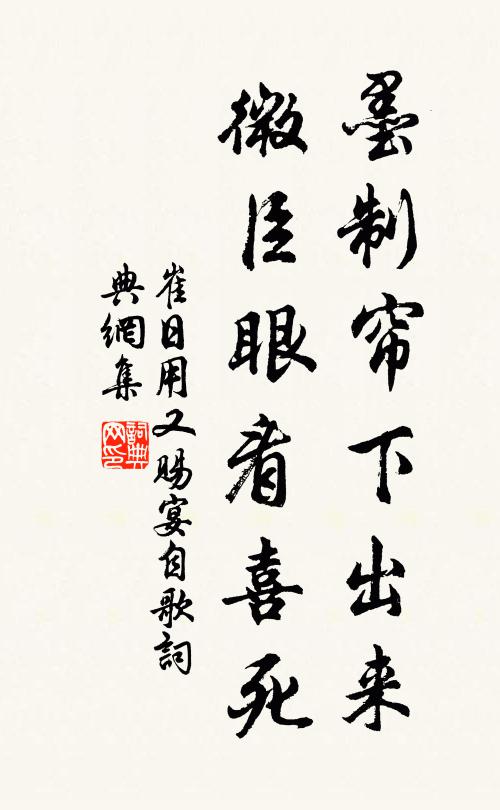 墨制帘下出来
微臣眼看喜死
崔日用又赐宴自歌詞
典網集
詞典网印